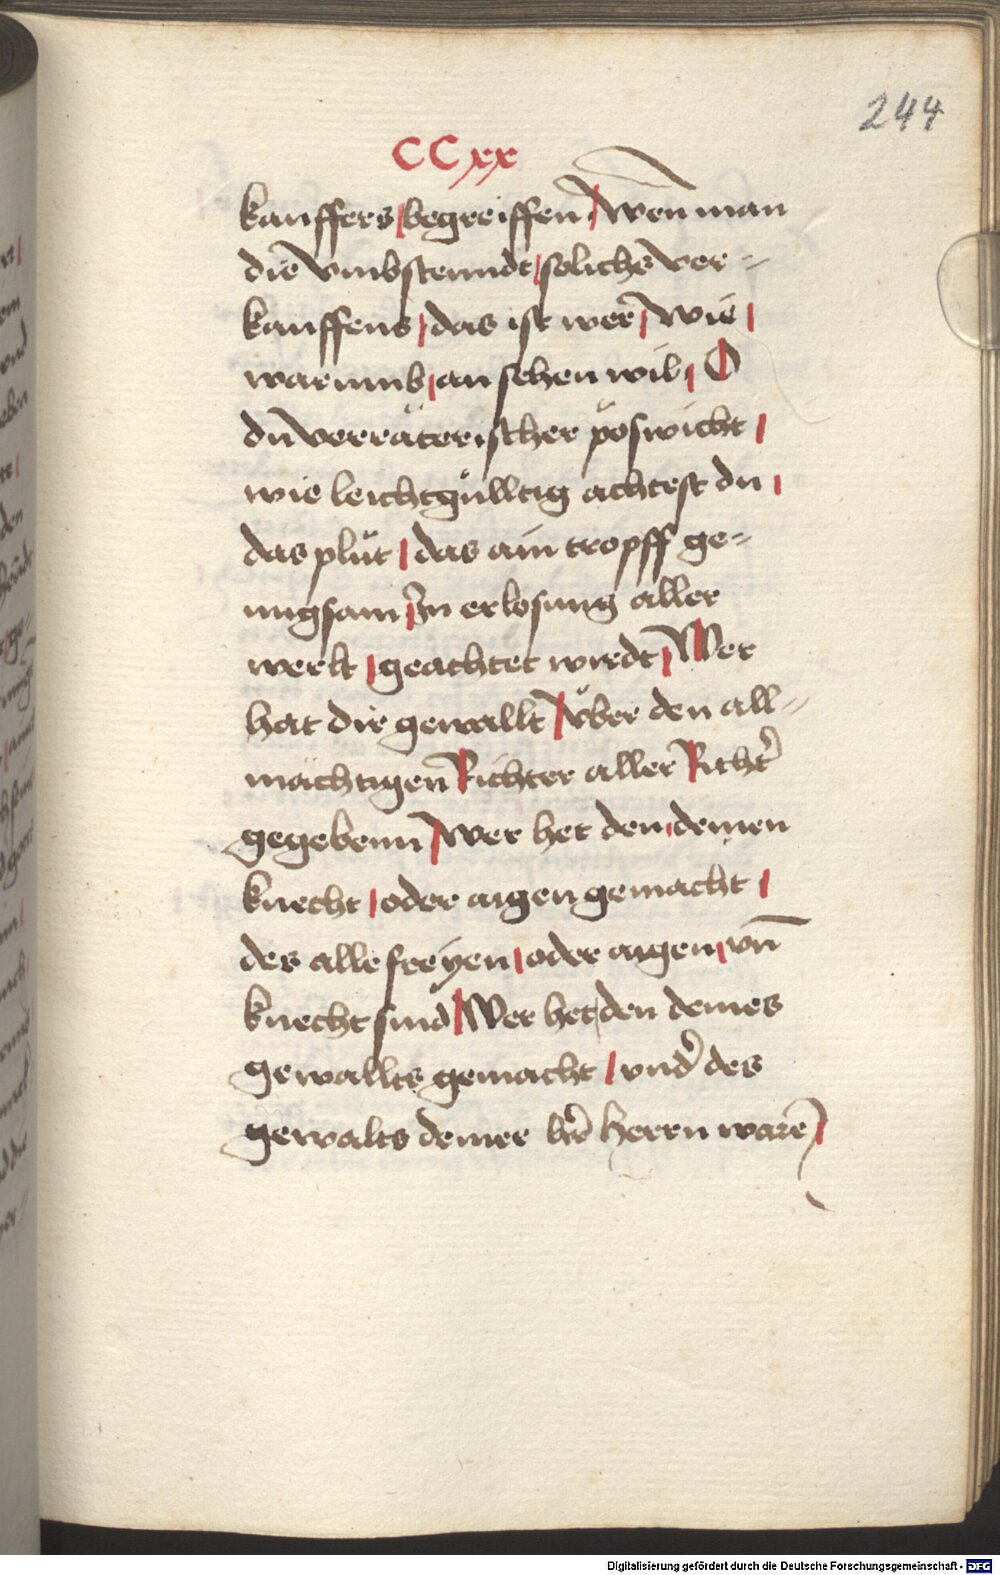 244
CCxx
kauffers begreiffen, Wen man
die vmbstenndt solichs ver=
kauffens, das ist wer, wie,
warumb, an sehen wil, O
du verräterischer pöswicht,
wie leichtgülltig achtest du,
das plůt, das ain tropff ge=
nugsam, zu erlosung aller
werlt, geachtet wirdt, Wer
hat dir gewallt, vber den all=
mächtigen Richter aller Richter̃
gegebenn, wer het den, deinen
knecht, oder aigen gemacht,
des alle freyen, oder aigen, vn̄
knecht sind, Wer het, den deines
gewallts gemacht, vnd des
gewalts deiner herrn waren,
Digitalisierung gefördert durch die Deutsche Forschungsgemeinschaft - DFG